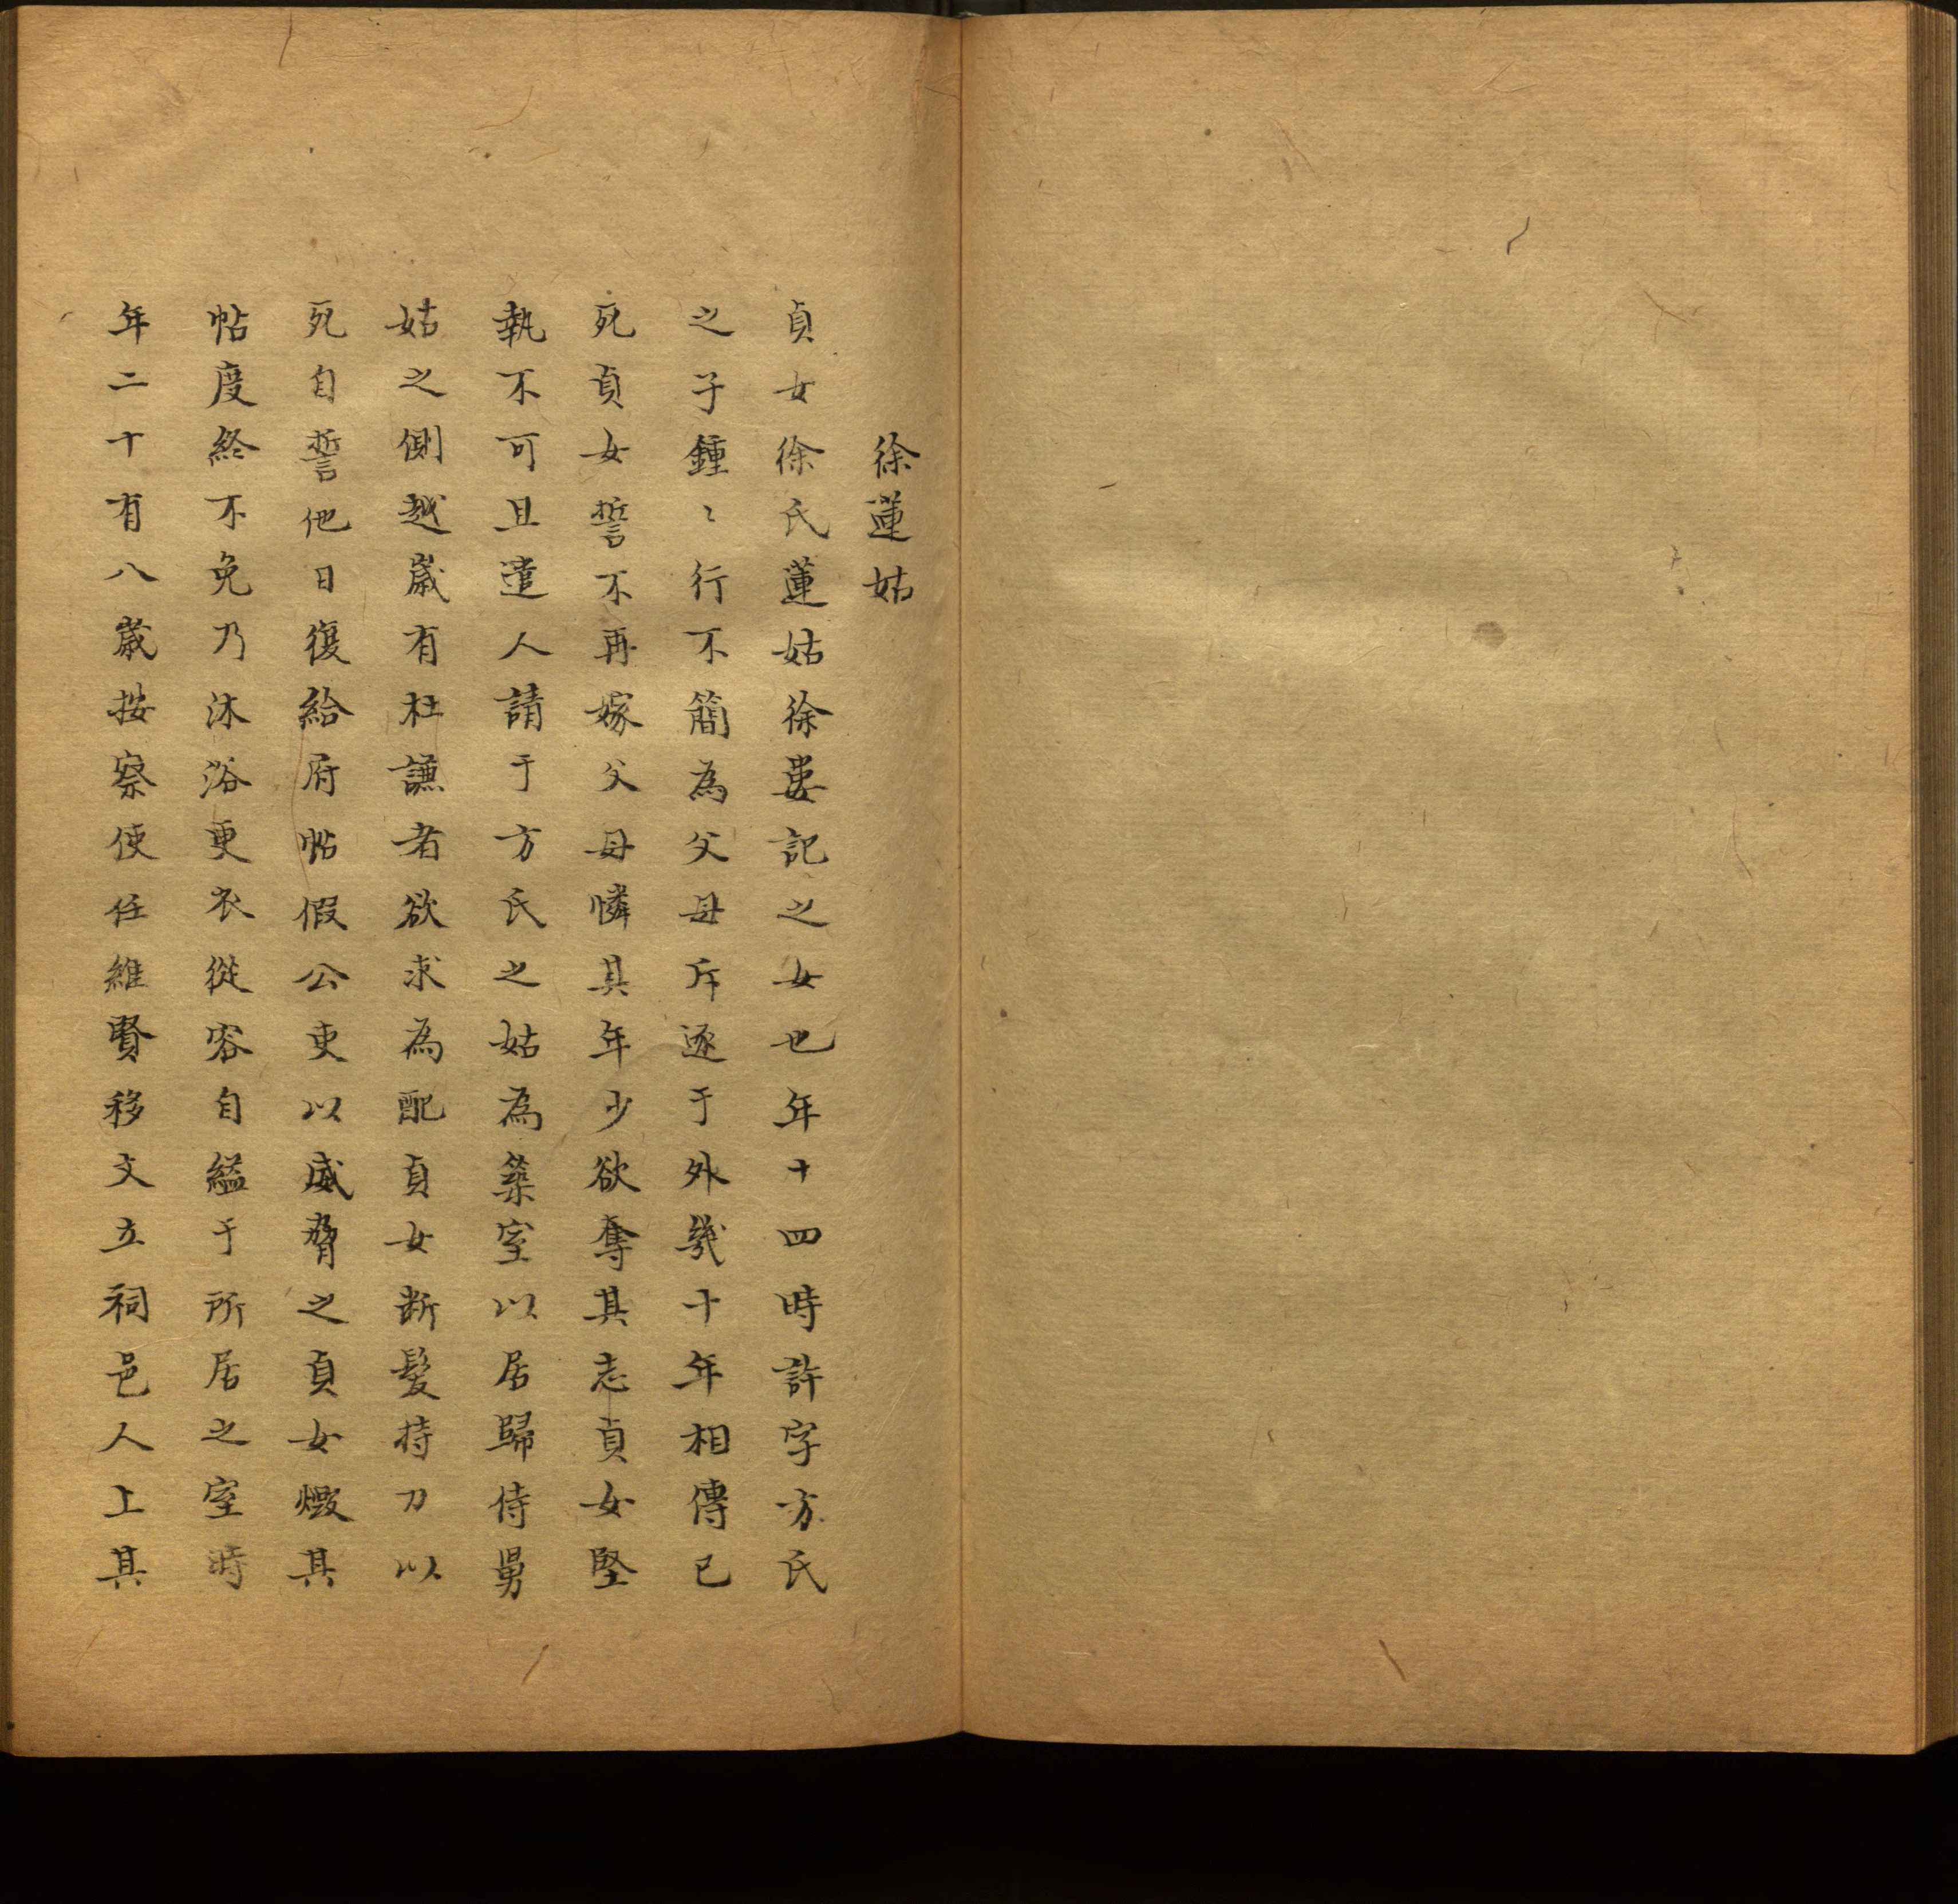 徐蓮姑
貞女徐氏蓮姑徐晏記之女也年十四時許字方氏
之子鍾〻行不簡為父母斥逐于外幾十年相傳已
死貞女誓不再嫁父母憐其年少欲奪其志貞女堅
執不可且遣人請于方氏之姑為築室以居歸侍舅
姑之側越嵗有杜謙者欲求為配貞女断髮持刀以
死自誓他日復給府帖假公吏以威脅之貞女燬其
帖度終不免乃沐浴更衣從容自縊于所居之室時
年二十有八嵗按察使任維賢移文立祠邑人上其